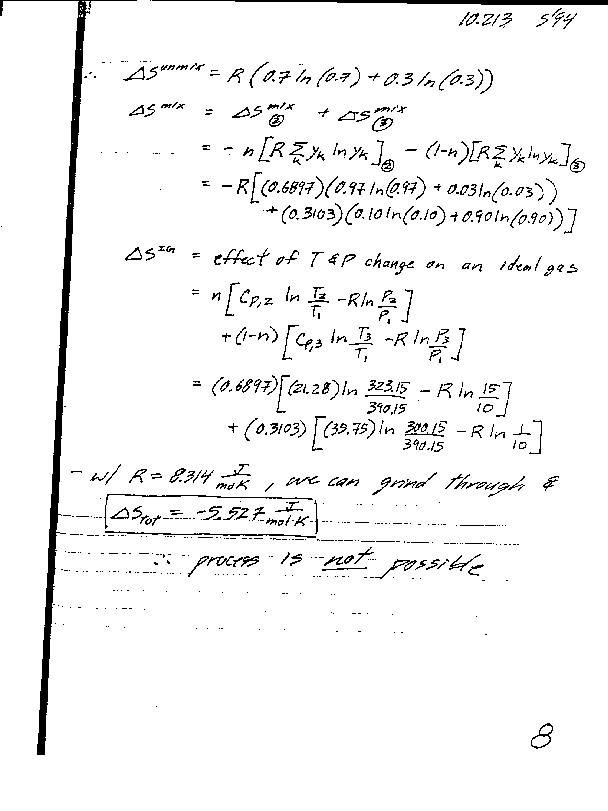 10.213 S'94
∴ ΔS^unmix = R (0.7 ln (0.7) + 0.3 ln (0.3))
ΔS^mix = ΔS^mix_② + ΔS^mix_③
= - n [R Σ_k y_k ln y_k]_② - (1-n) [R Σ_k y_k ln y_k]_③
= -R[(0.6897)(0.97 ln (0.97) + 0.03 ln (0.03))
+ (0.3103)(0.10 ln (0.10) + 0.90 ln (0.90))]
ΔS^IG = effect of T & P change on an ideal gas
= n [C_P,2 ln T_2/T_1 - R ln P_2/P_1]
+ (1-n) [C_P,3 ln T_3/T_1 - R ln P_3/P_1]
= (0.6897)[(21.28) ln 323.15/390.15 - R ln 15/10]
+ (0.3103) [(35.75) ln 300.15/390.15 - R ln 1/10]
- w/ R = 8.314 J/mol K , we can grind through &
ΔS_tot = -5.527 J/mol·K
∴ process is not possible
8